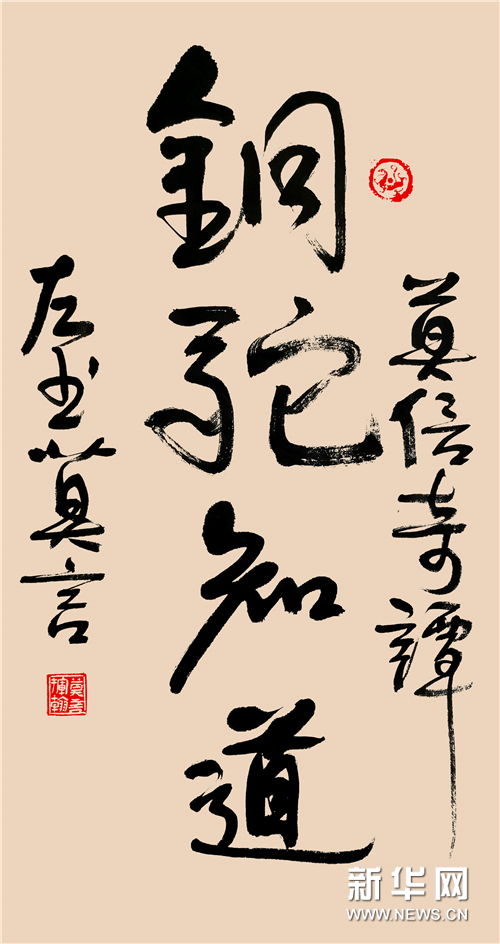 莫信奇譚
銅駝知道
左书莫言
莫言
揮翰
新华网
WWW.NEWS.CN